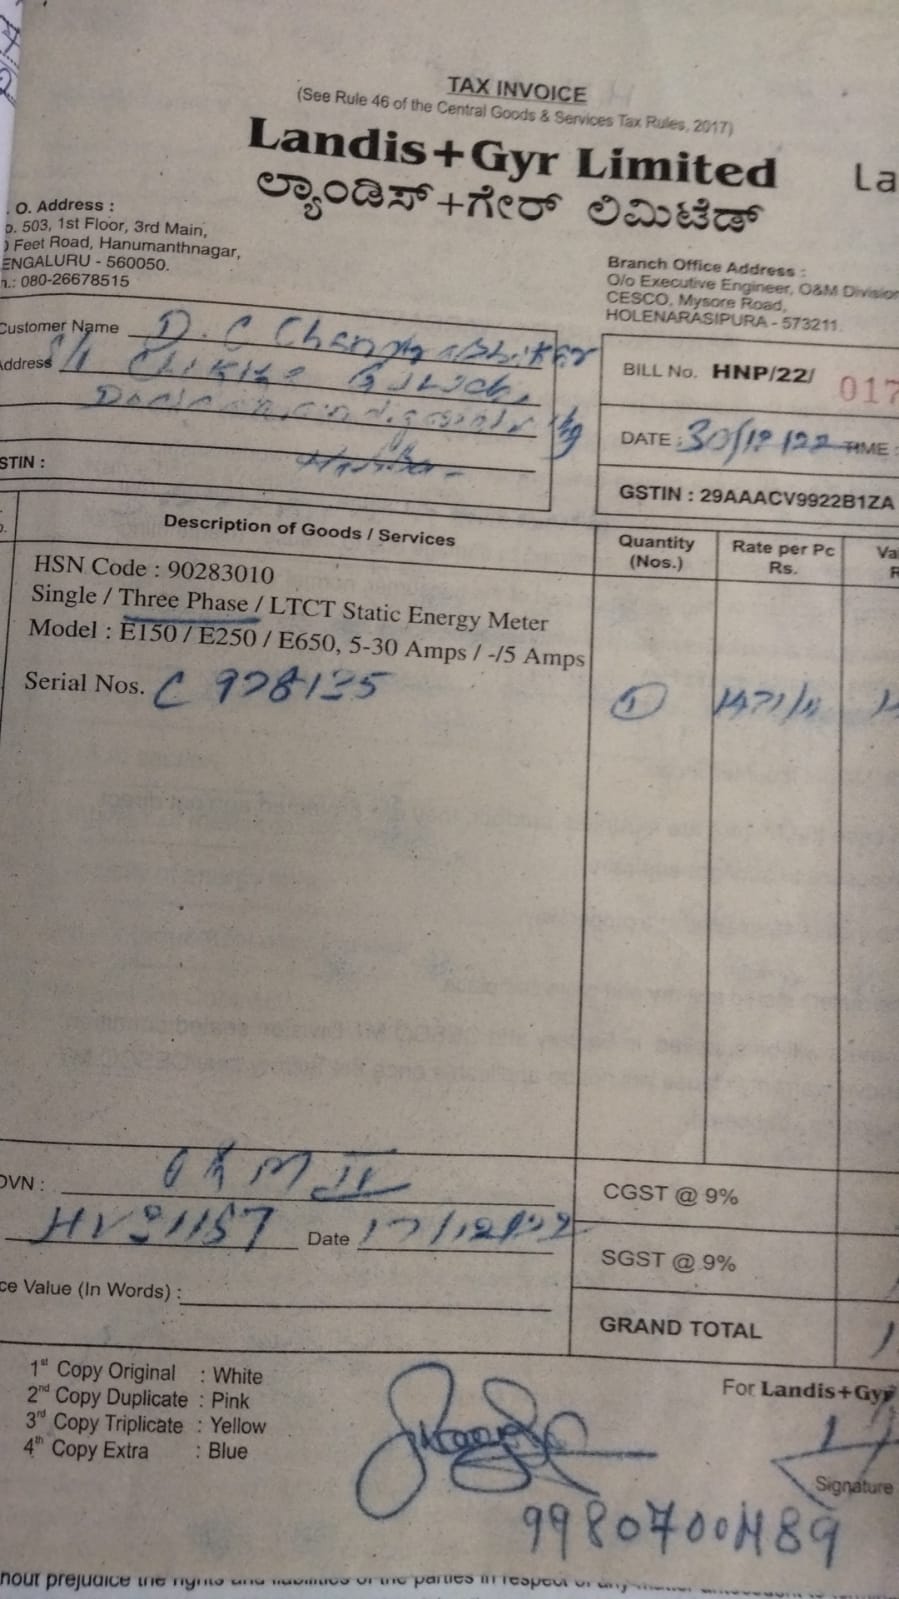 TAX INVOICE
(See Rule 46 of the Central Goods & Services Tax Rules, 2017)
Landis+Gyr Limited
La
ಲ್ಯಾಂಡಿಸ್+ಗೇರ್ ಲಿಮಿಟೆಡ್
. O. Address :
o. 503, 1st Floor, 3rd Main,
Feet Road, Hanumanthnagar,
ENGALURU - 560050.
n.: 080-26678515
Branch Office Address :
O/o Executive Engineer, O&M Division
CESCO, Mysore Road,
HOLENARASIPURA - 573211.
Customer Name D. C
Address
STIN :
BILL No. HNP/22/ 017
DATE : 30/12/22 TIME :
GSTIN : 29AAACV9922B1ZA
Description of Goods / Services
Quantity (Nos.)
Rate per Pc Rs.
Va
HSN Code : 90283010
Single / Three Phase / LTCT Static Energy Meter
Model : E150 / E250 / E650, 5-30 Amps / -/5 Amps
Serial Nos. C 978135 1
DVN : O & M II
CGST @ 9%
Date 17/12/22
SGST @ 9%
ce Value (In Words) :
GRAND TOTAL
1st Copy Original : White
2nd Copy Duplicate : Pink
3rd Copy Triplicate : Yellow
4th Copy Extra : Blue
For Landis+Gyr
Signature
9980700489
hout prejudice the rights and liabilities of the parties in respect of any